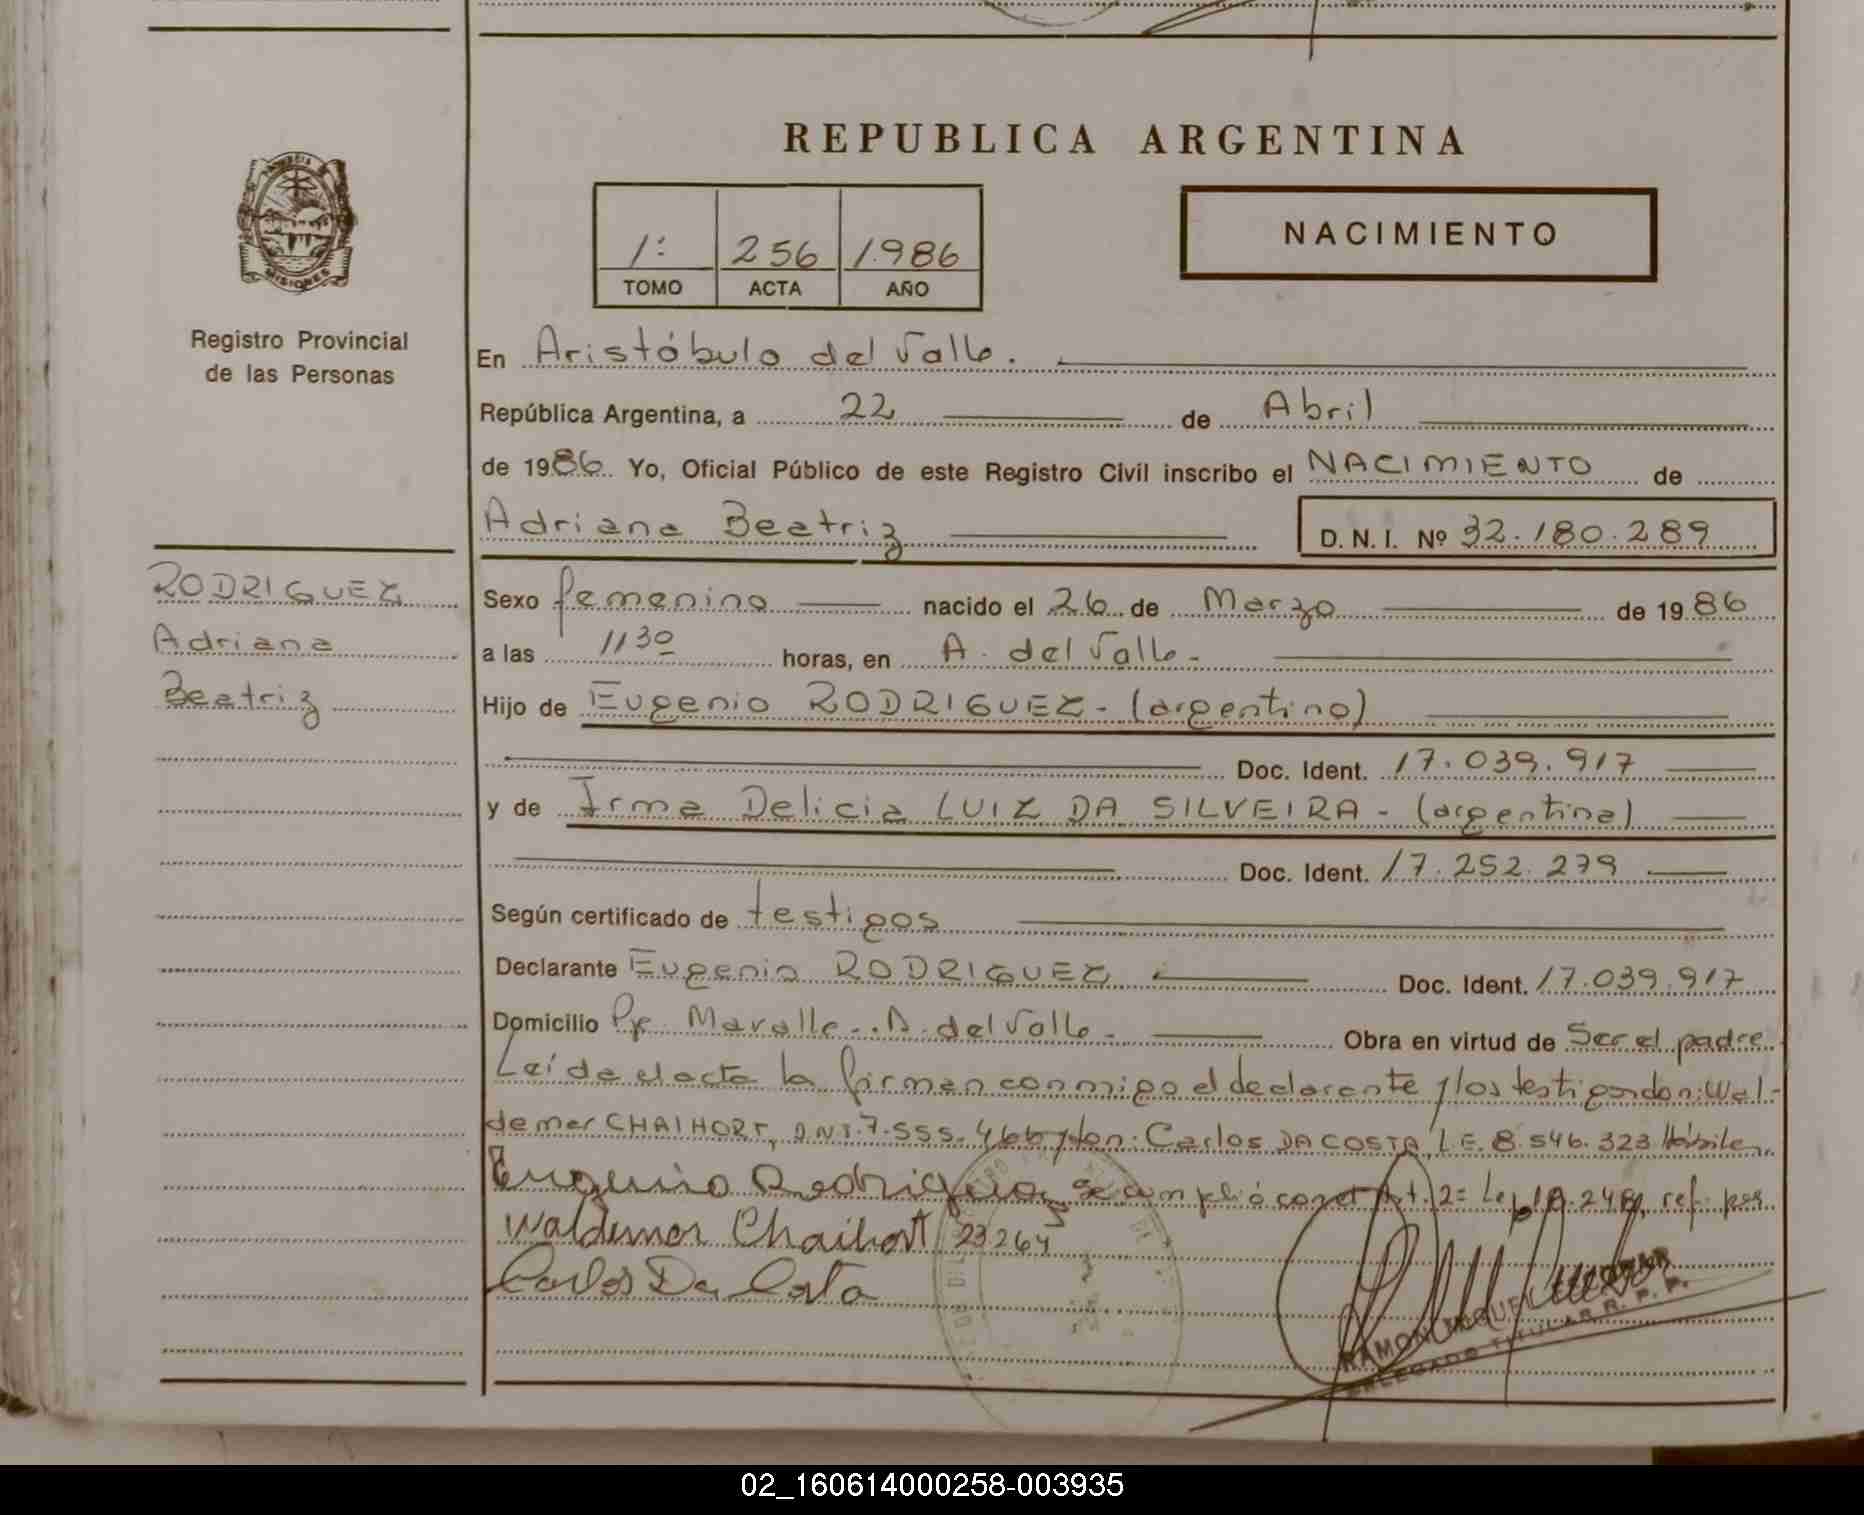 REPUBLICA ARGENTINA
MISIONES
Registro Provincial
de las Personas
1º 256 1.986
TOMO ACTA AÑO
NACIMIENTO
En Aristóbulo del Valle.
República Argentina, a 22 de Abril
de 1986 Yo, Oficial Público de este Registro Civil inscribo el NACIMIENTO de
Adriana Beatriz
D. N. I. Nº 32.180.289
RODRIGUEZ
Adriana
Beatriz
Sexo femenino nacido el 26 de Marzo de 1986
a las 11 30 horas, en A. del Valle -
Hijo de Eugenio RODRIGUEZ - (argentino)
Doc. Ident. 17.039.917
y de Irma Delicia LUIZ DA SILVEIRA - (argentina)
Doc. Ident. 17.252.279
Según certificado de testigos
Declarante Eugenio RODRIGUEZ Doc. Ident. 17.039.917
Domicilio Pje. Mavalle - A. del Valle - Obra en virtud de Ser el padre
Leída el acta la firman conmigo el declarante y los testigos don: Wal-
demar CHAIHORT, D.N.I. 7.555.466 y don: Carlos DA COSTA, L.E. 8.546.323 Hábiles
Eugenio Rodriguez Se cumplió con el Art. 12= Ley 18.248, ref. per.
Waldemar Chaihort 23264
Carlos Da Costa
RAMON MIGUEL
DELEGADO TITULAR R. P. P.
02_160614000258-003935